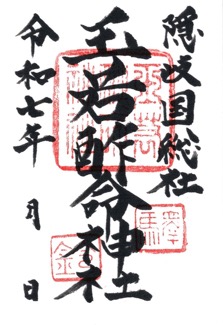 隠岐国総社
玉若酢命神社
令和七年 月 日